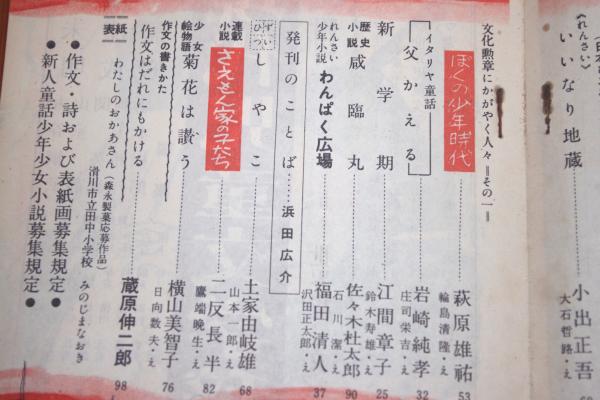 (れんさい)
いいなり地蔵
小出正吾
大石哲路・え
文化勲章にかがやく人々=その一=
ぼくの少年時代
萩原雄祐
輪島清隆・え
53
イタリヤ童話
父かえる
岩崎純孝
庄司栄吉・え
32
新学期
江間章子
鈴木寿雄・え
25
歴史小説
咸臨丸
佐々木杜太郎
石川潔・え
90
れんさい少年小説
わんぱく広場
福田清人
沢田正太郎・え
37
発刊のことば……浜田広介
ずいひつ
しやこ
土家由岐雄
山本一郎・え
68
連載小説
さえもん家の子たち
二反長半
鷹端晩生・え
82
少女絵物語
菊花は讃う
横山美智子
日向数夫・え
76
作文の書きかた
作文はだれにもかける
蔵原伸二郎
98
表紙
わたしのおかあさん(森永製菓応募作品)
滑川市立田中小学校 みのじまなおき
●作文・詩および表紙画募集規定●
●新人童話少年少女小説募集規定●